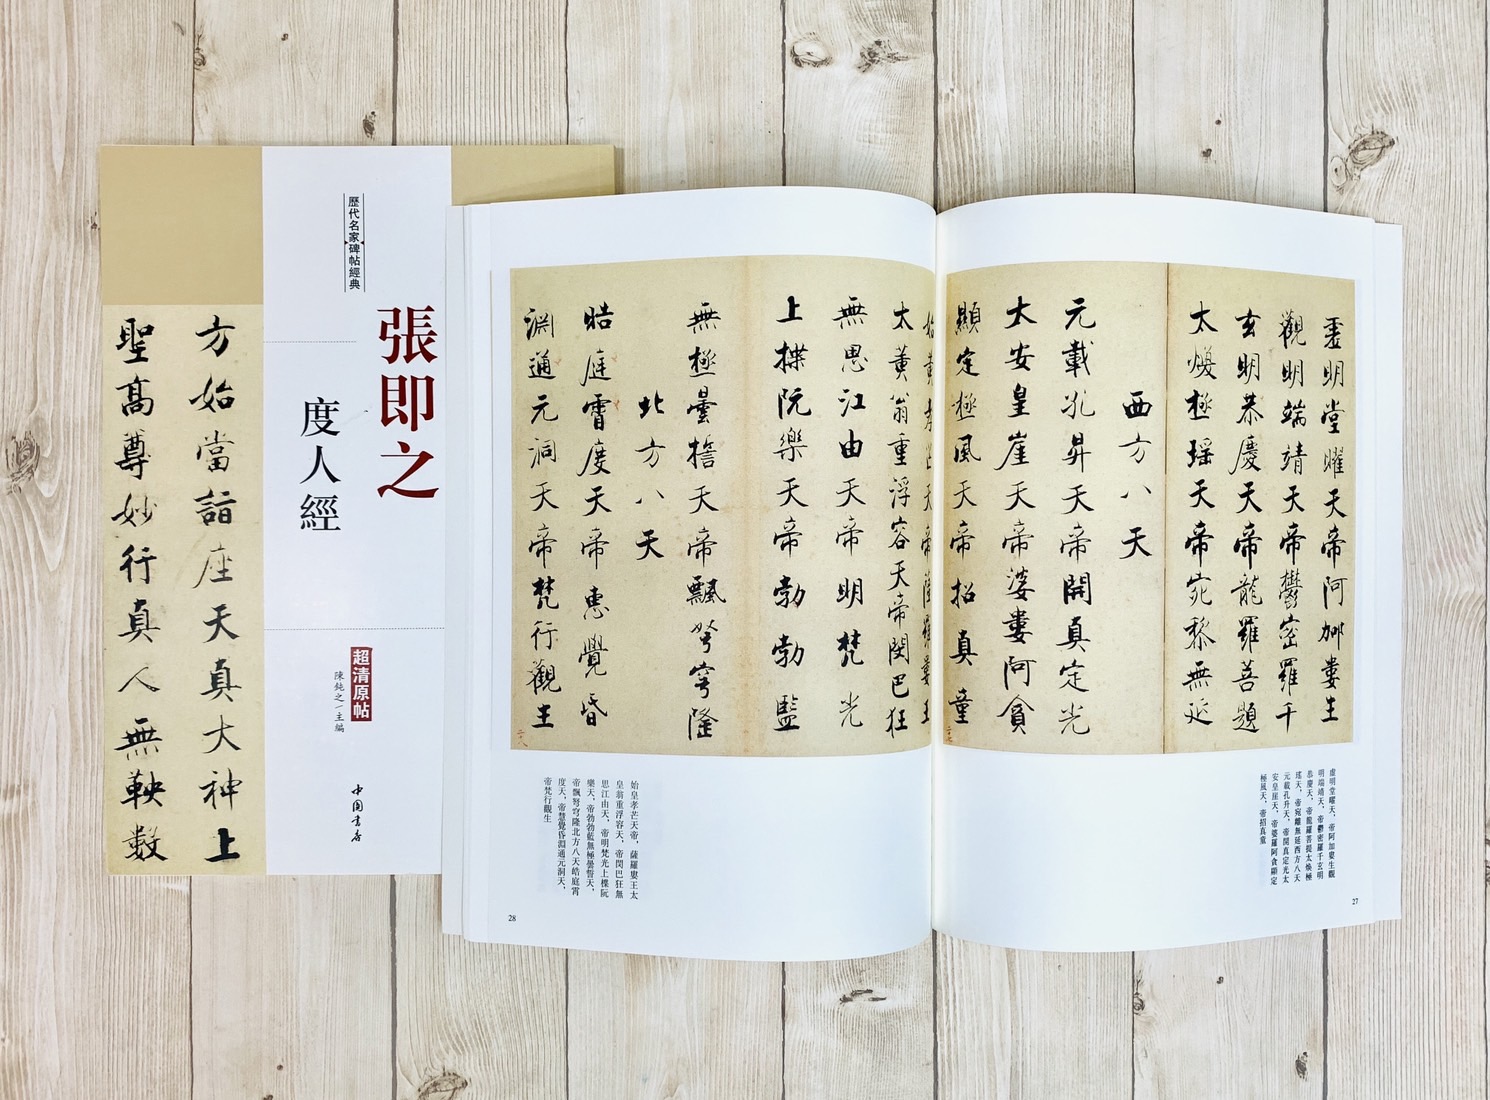 歷代名家碑帖經典
張即之
度人經
超清原帖
陳鈍之 主編
中國書店
方始當詣座天真大神上
聖高尊妙行真人無鞅數
虛明堂曜天帝阿加婁生
觀明端靖天帝鬱密羅千
玄明恭慶天帝龍羅菩題
太煥極瑶天帝宛黎無延
西方八天
元載孔昇天帝開真定光
太安皇崖天帝婆婁阿貪
顯定極風天帝招真童
太黃翁重浮容天帝閔巴狂
無思江由天帝明梵光
上揲阮樂天帝勃勃監
無極曇誓天帝飄弩穹隆
北方八天
皓庭霄度天帝惠覺昏
淵通元洞天帝梵行觀生
虛明堂曜天，帝阿加婁生觀
明端靖天，帝鬱密羅千玄明
恭慶天，帝龍羅菩提太煥極
瑤天，帝宛離無延西方八天
元載孔升天，帝開真定光太
安皇崖天，帝婆羅阿貪顯定
極風天，帝招真童
27
始皇孝芒天帝，薩羅婁王太
皇翁重浮容天，帝閔巴狂無
思江由天，帝明梵光上楪阮
樂天，帝勃勃藍無極曇誓天，
帝飄弩穹隆北方八天皓庭霄
度天，帝慧覺昏淵通元洞天，
帝梵行觀生
28